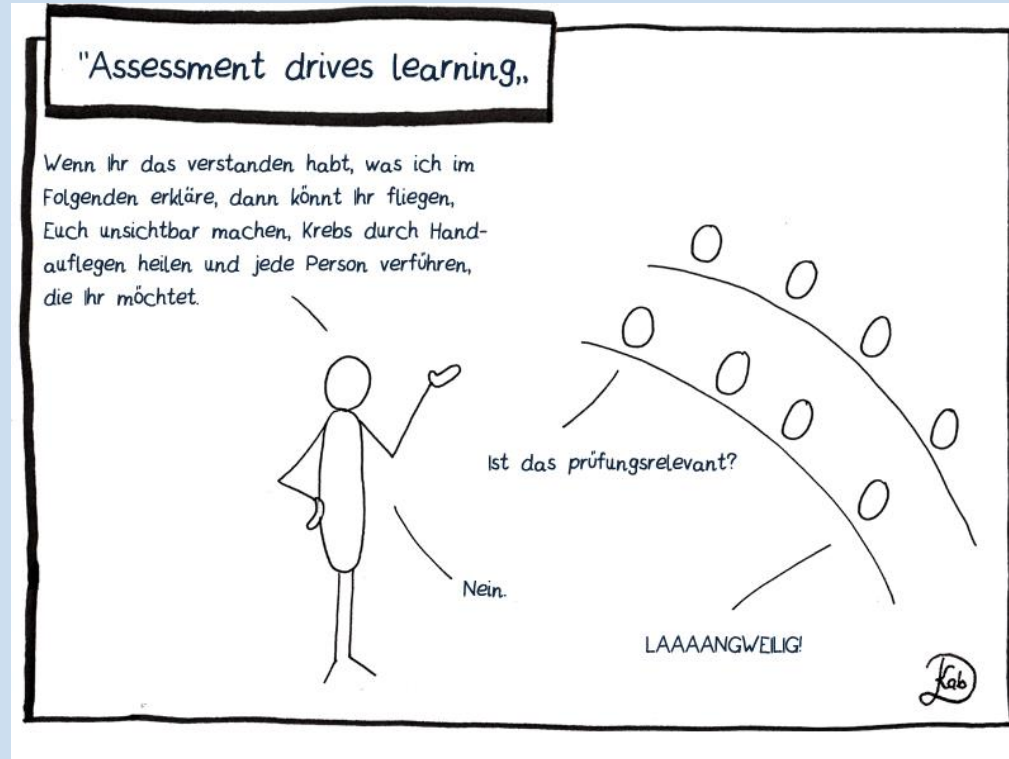 "Assessment drives learning„
Wenn Ihr das verstanden habt, was ich im
Folgenden erkläre, dann könnt Ihr fliegen,
Euch unsichtbar machen, Krebs durch Hand-
auflegen heilen und jede Person verführen,
die Ihr möchtet.
Ist das prüfungsrelevant?
Nein.
LAAAANGWEILIG!
Kab